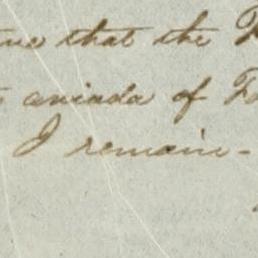 that the
aviada of
I remain -